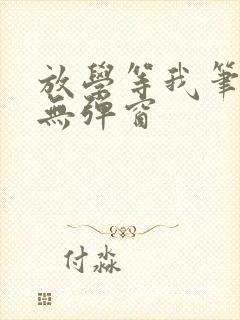 放學等我筆
無彈窗
付淼